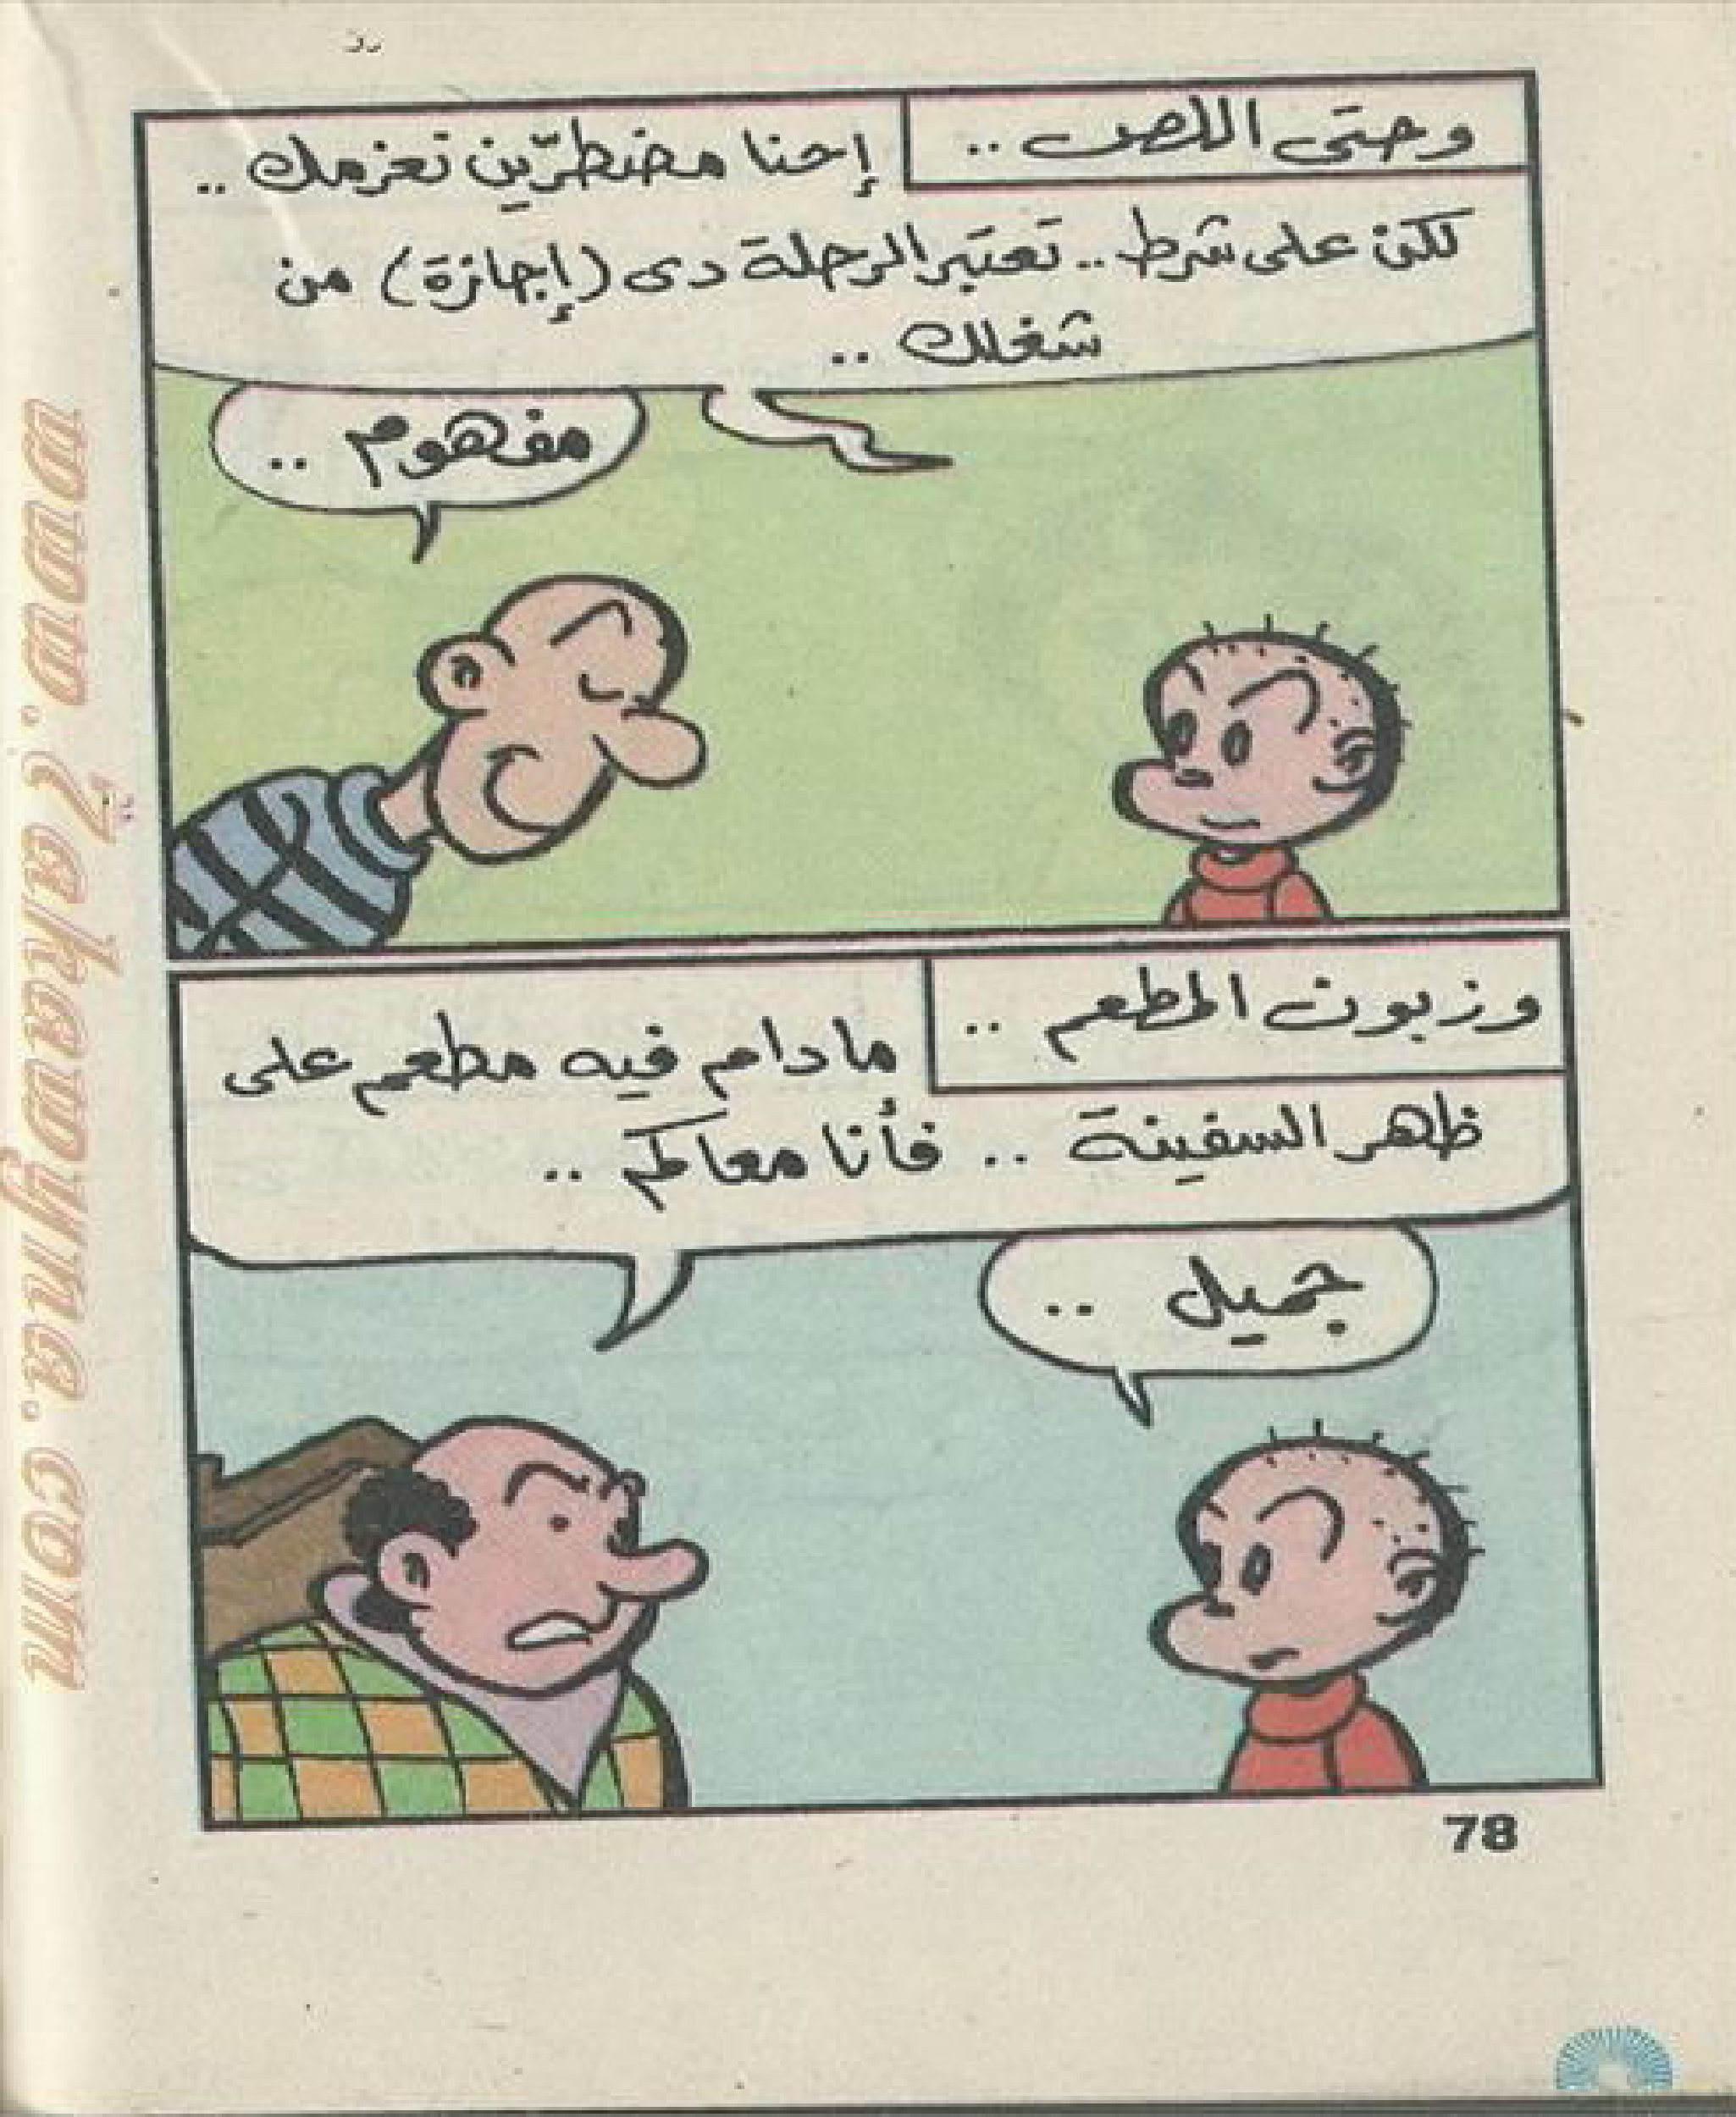 وحتى اللص ..
إحنا مضطرّين نعزمك ..
لكن على شرط .. تعتبر الرحلة دى (إجازة) من
شغلك ..
مفهوم ..
وزبون المطعم ..
مادام فيه مطعم على
ظهر السفينة .. فأنا معاكم ..
جميل ..
78